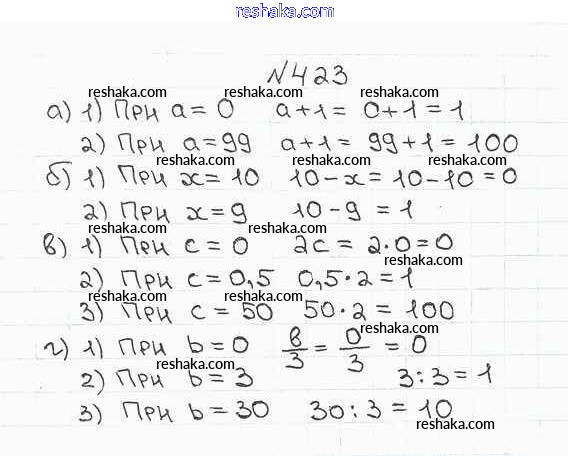 reshaka.com
№423
reshaka.com reshaka.com reshaka.com
а) 1) При a = 0 a+1 = 0+1 = 1
2) При a = 99 a+1 = 99+1 = 100
reshaka.com reshaka.com
б) 1) При x = 10 10-x = 10-10 = 0
2) При x = 9 10-9 = 1
reshaka.com reshaka.com
в) 1) При c = 0 2c = 2·0 = 0
2) При c = 0,5 0,5·2 = 1
reshaka.com reshaka.com
3) При c = 50 50·2 = 100
reshaka.com
г) 1) При b = 0 в/3 = 0/3 = 0
reshaka.com
2) При b = 3 3:3 = 1
3) При b = 30 30:3 = 10
reshaka.com